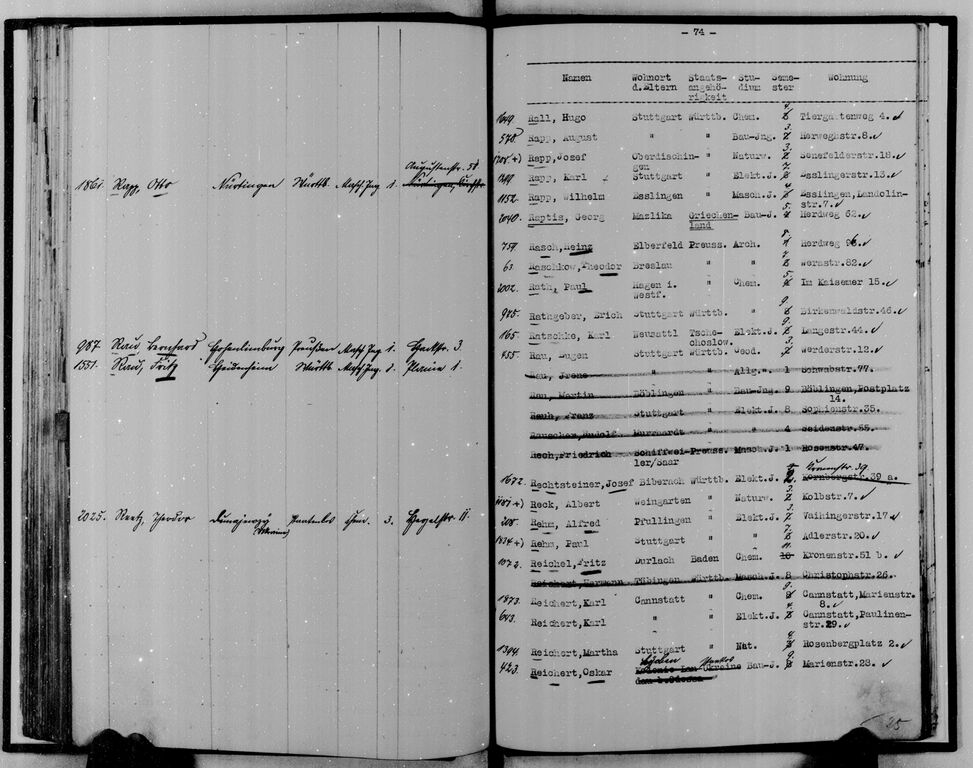 Augustenstr. 5
1861. Rapp, Otto Nürtingen Württb. Masch.Ing. 1. Nürtingen,
987. Rau, Bernhard Hohenlimburg Preußen Masch.Ing. 1. 3.
1551. Rau, Fritz Heidenheim Württb. Masch.Ing. 1.
2025. Reetz, Theodor staatenlos 3. Hegelstr. 11.
(Ukraine)
- 74 -
Namen Wohnort Staats- Stu- Seme- Wohnung
d.Eltern angehö- dium ster
rigkeit
1649. Rall, Hugo Stuttgart Württb. Chem. 4. Tiergartenweg 4.
578. Rapp, August " " Bau-Jng. 3. Herweghstr.8.
Rapp, Josef Oberdischin- " Naturw. 3. Senefelderstr.18.
gen
Rapp, Karl Stuttgart " Elekt.J. Esslingerstr.13.
1152. Rapp, Wilhelm Esslingen " Masch.J. 4. Esslingen,Landolin-
str.7.
2040. Raptis, Georg Mazlika Griechen- Bau-J. 5. Herdweg 62.
land
759. Rasch,Heinz Elberfeld Preuss. Arch. 8. Herdweg
63. Raschkow,Theodor Breslau " " 7. Werastr.82.
2002. Rath, Paul Hagen i. " Chem. 5. Im Kaisemer 15.
Westf.
975. Rathgeber, Erich Stuttgart Württb. " 9. Birkenwaldstr.46.
165. Ratschke, Karl Neusattl Tsche- Elekt.J. 9. Langestr.44.
choslow.
455. Rau, Eugen Stuttgart Württb. Geod. 3. Werderstr.12.
Rau, Irene " " Allg.W. 1 Schwabstr.77.
Rau, Martin Böblingen " Bau-Jng. 9 Böblingen,Postplatz
14.
Rauh, Franz Stuttgart " Elekt.J. 8 Sophienstr.35.
Rauscher,Rudolf Murrhardt " " 4 Seidenstr.55.
Rech,Friedrich Schiffwei- Preuss. Masch.J. 1 Rosenstr.47.
ler/Saar
1672. Rechtsteiner,Josef Biberach Württb. Elekt.J. 2. Kornbergstr.39 a.
Reck, Albert Weingarten " Naturw. 2. Kolbstr.7.
208. Rehm, Alfred Pfullingen " Elekt.J. 3. Vaihingerstr.17.
1834 +) Rehm, Paul Stuttgart " " 7. Adlerstr.20.
1072. Reichel,Fritz Durlach Baden Chem. 11. 10 Kronenstr.51 b.
Reichert,Hermann Tübingen Württb. Masch.J. 8 Christophstr.26.
1873. Reichert,Karl Cannstatt " Chem. 9. Cannstatt,Marienstr.
8.
643. Reichert,Karl " " Elekt.J. 4. Cannstatt,Paulinen-
str.29.
1394. Reichert,Martha Stuttgart " Nat. 4. Rosenbergplatz 2.
423. Reichert,Oskar Ukraine Bau-J. 9. Marienstr.28.
25